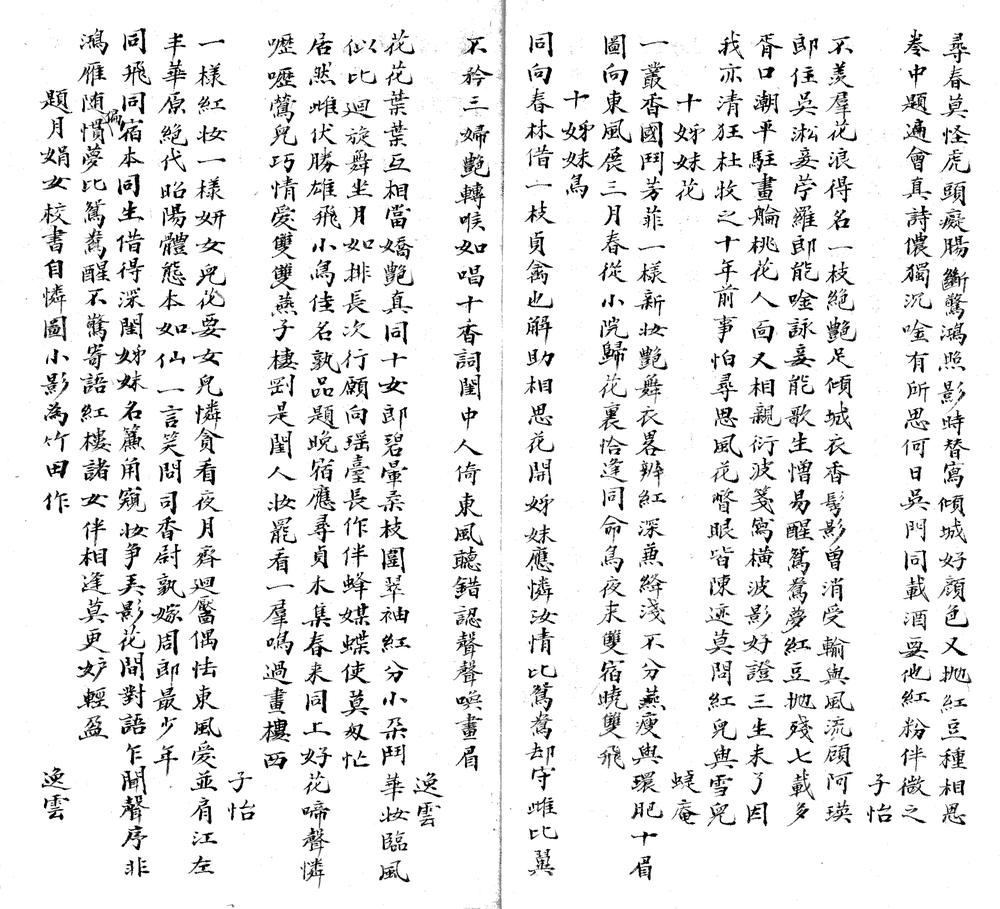 尋春莫怪虎頭癡腸斷驚鴻照影時替寫傾城好顏色又拋紅豆種相思
卷中題遍會真詩儂獨沉唫有所思何日吳門同載酒要他紅粉伴微之
子怡
不羨羣花浪得名一枝絕艷足傾城衣香髩影曾消受輸與風流顧阿瑛
郎住吳淞妾苧羅郎能唫詠妾能歌生憎易醒鴛鴦夢紅豆拋殘七載多
胥口潮平駐畫艫桃花人面又相親衍波箋寫橫波影好證三生未了因
我亦清狂杜牧之十年前事怕尋思風花瞥眼皆陳迹莫問紅兒與雪兒
蜨庵
十姊妹花
一叢香國鬥芳菲一樣新妝艷舞衣畧辨紅深兼絳淺不分燕瘦與環肥十眉
圖向東風展三月春從小院歸花裏恰逢同命鳥夜來雙宿曉雙飛
十姊妹鳥
同向春林借一枝貞禽也解助相思花開姊妹應憐汝情比鴛鴦却守雌比翼
不矜三婦艷轉喉如唱十香詞閨中人倚東風聽錯認聲聲喚畫眉
逸雲
花花葉葉互相當嬌艷真同十女郎碧暈柔枝圍翠袖紅分小朵鬥華妝臨風
似比迴旋舞坐月如排長次行願向瑶臺長作伴蜂媒蝶使莫匆忙
居然雌伏勝雄飛小鳥佳名孰品題晚宿應尋貞木集春来同上好花啼聲憐
嚦嚦鶯兒巧情愛雙雙燕子棲剛是閨人妝罷看一羣鳴過畫樓西
子怡
一樣紅妝一樣妍女兒花要女兒憐貪看夜月齊迴靨偶怯東風愛並肩江左
丰華原絕代昭陽體態本如仙一言笑問司香尉孰嫁周郎最少年
同飛同宿本同生借得深閨姊妹名簾角窺妝爭弄影花間對語乍聞聲序非
鴻雁随偏慣夢比鴛鴦醒不驚寄語紅樓諸女伴相逢莫更妒輕盈
逸雲
題月娟女校書自憐圖小影為竹田作